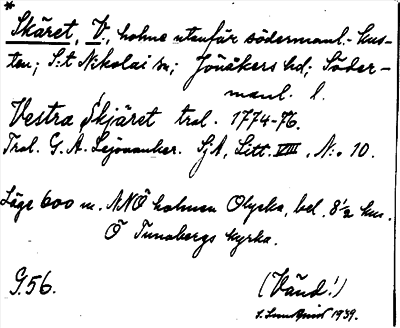 *
Skäret, V., holme utanför södermanl.-kus-
ten; S:t Nikolai sn; Jönåkers hd; Söder-
manl. l.
Västra Skjäret tral. 1774-76.
Tral. G. A. Lejonanker. SjA, Litt. VIII, N:o 10.
Läge 600 m. NNÖ holmen Olycka, bel. 8½ km.
Ö Tunabergs kyrka.
G.56.
(Vänd!)
1939.